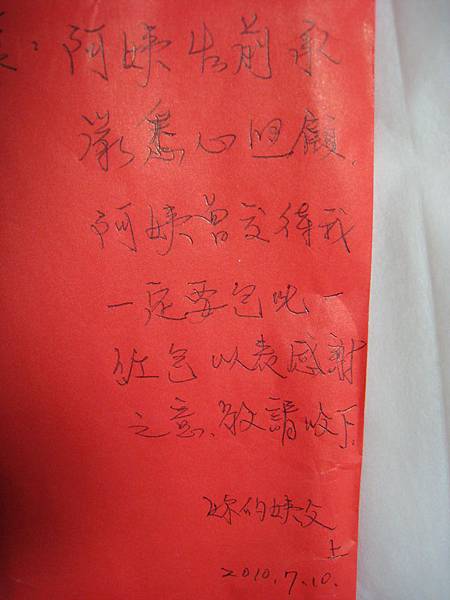 ：阿姨生前承
蒙悉心迴顧,
阿姨曾交待我
一定要包此一
紅包以表感謝
之意,敬請收下.
妳的姨父
上
2010.7.10.